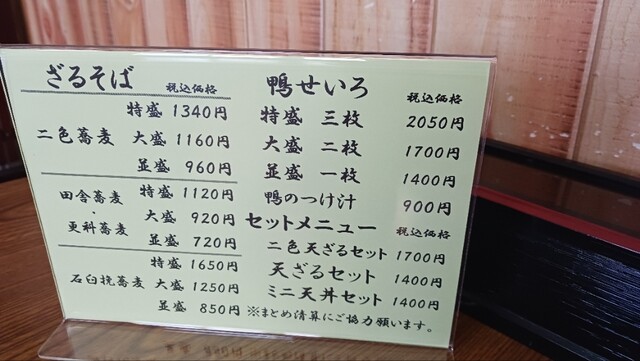 ざるそば 税込価格
特盛 1340円
二色蕎麦 大盛 1160円
並盛 960円
田舎蕎麦・更科蕎麦 特盛 1120円
大盛 920円
並盛 720円
特盛 1650円
石臼挽蕎麦 大盛 1250円
並盛 850円
鴨せいろ 税込価格
特盛 三枚 2050円
大盛 二枚 1700円
並盛 一枚 1400円
鴨のつけ汁 900円
セットメニュー 税込価格
二色天ざるセット 1700円
天ざるセット 1400円
ミニ天丼セット 1400円
※まとめ清算にご協力願います。